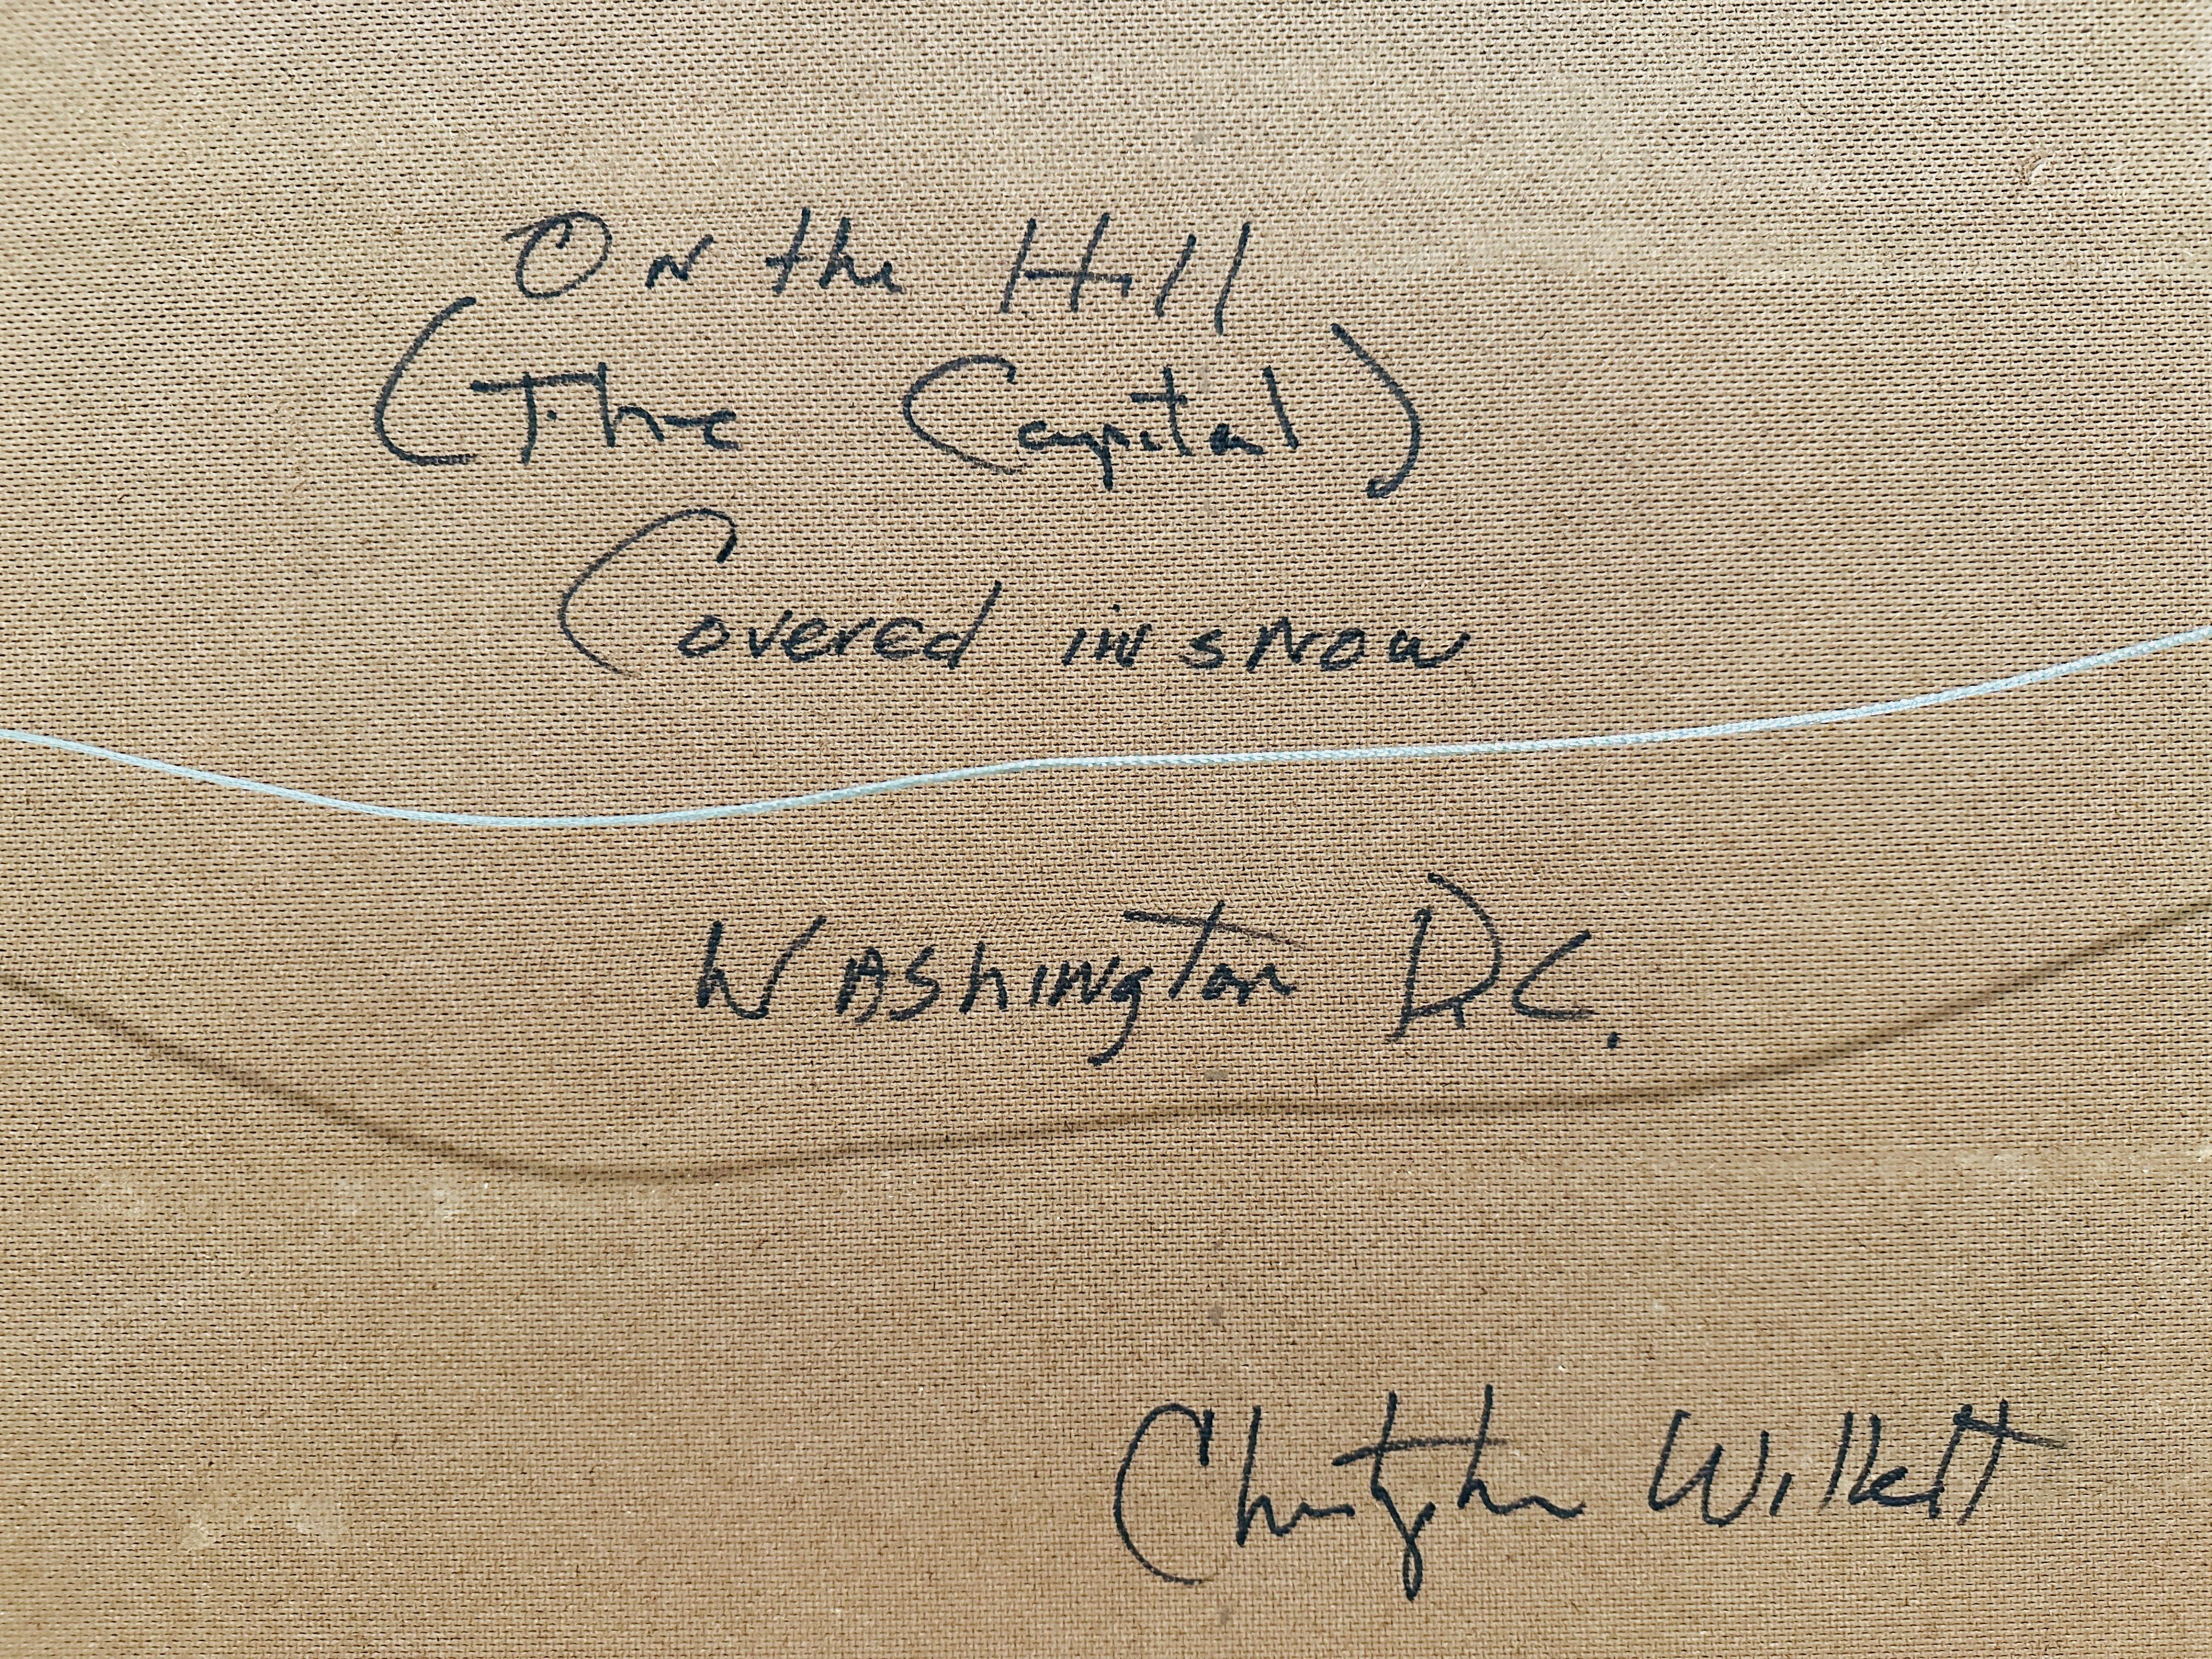 On the Hill
(The Capital)
Covered in snow
Washington D.C.
Christopher Willett